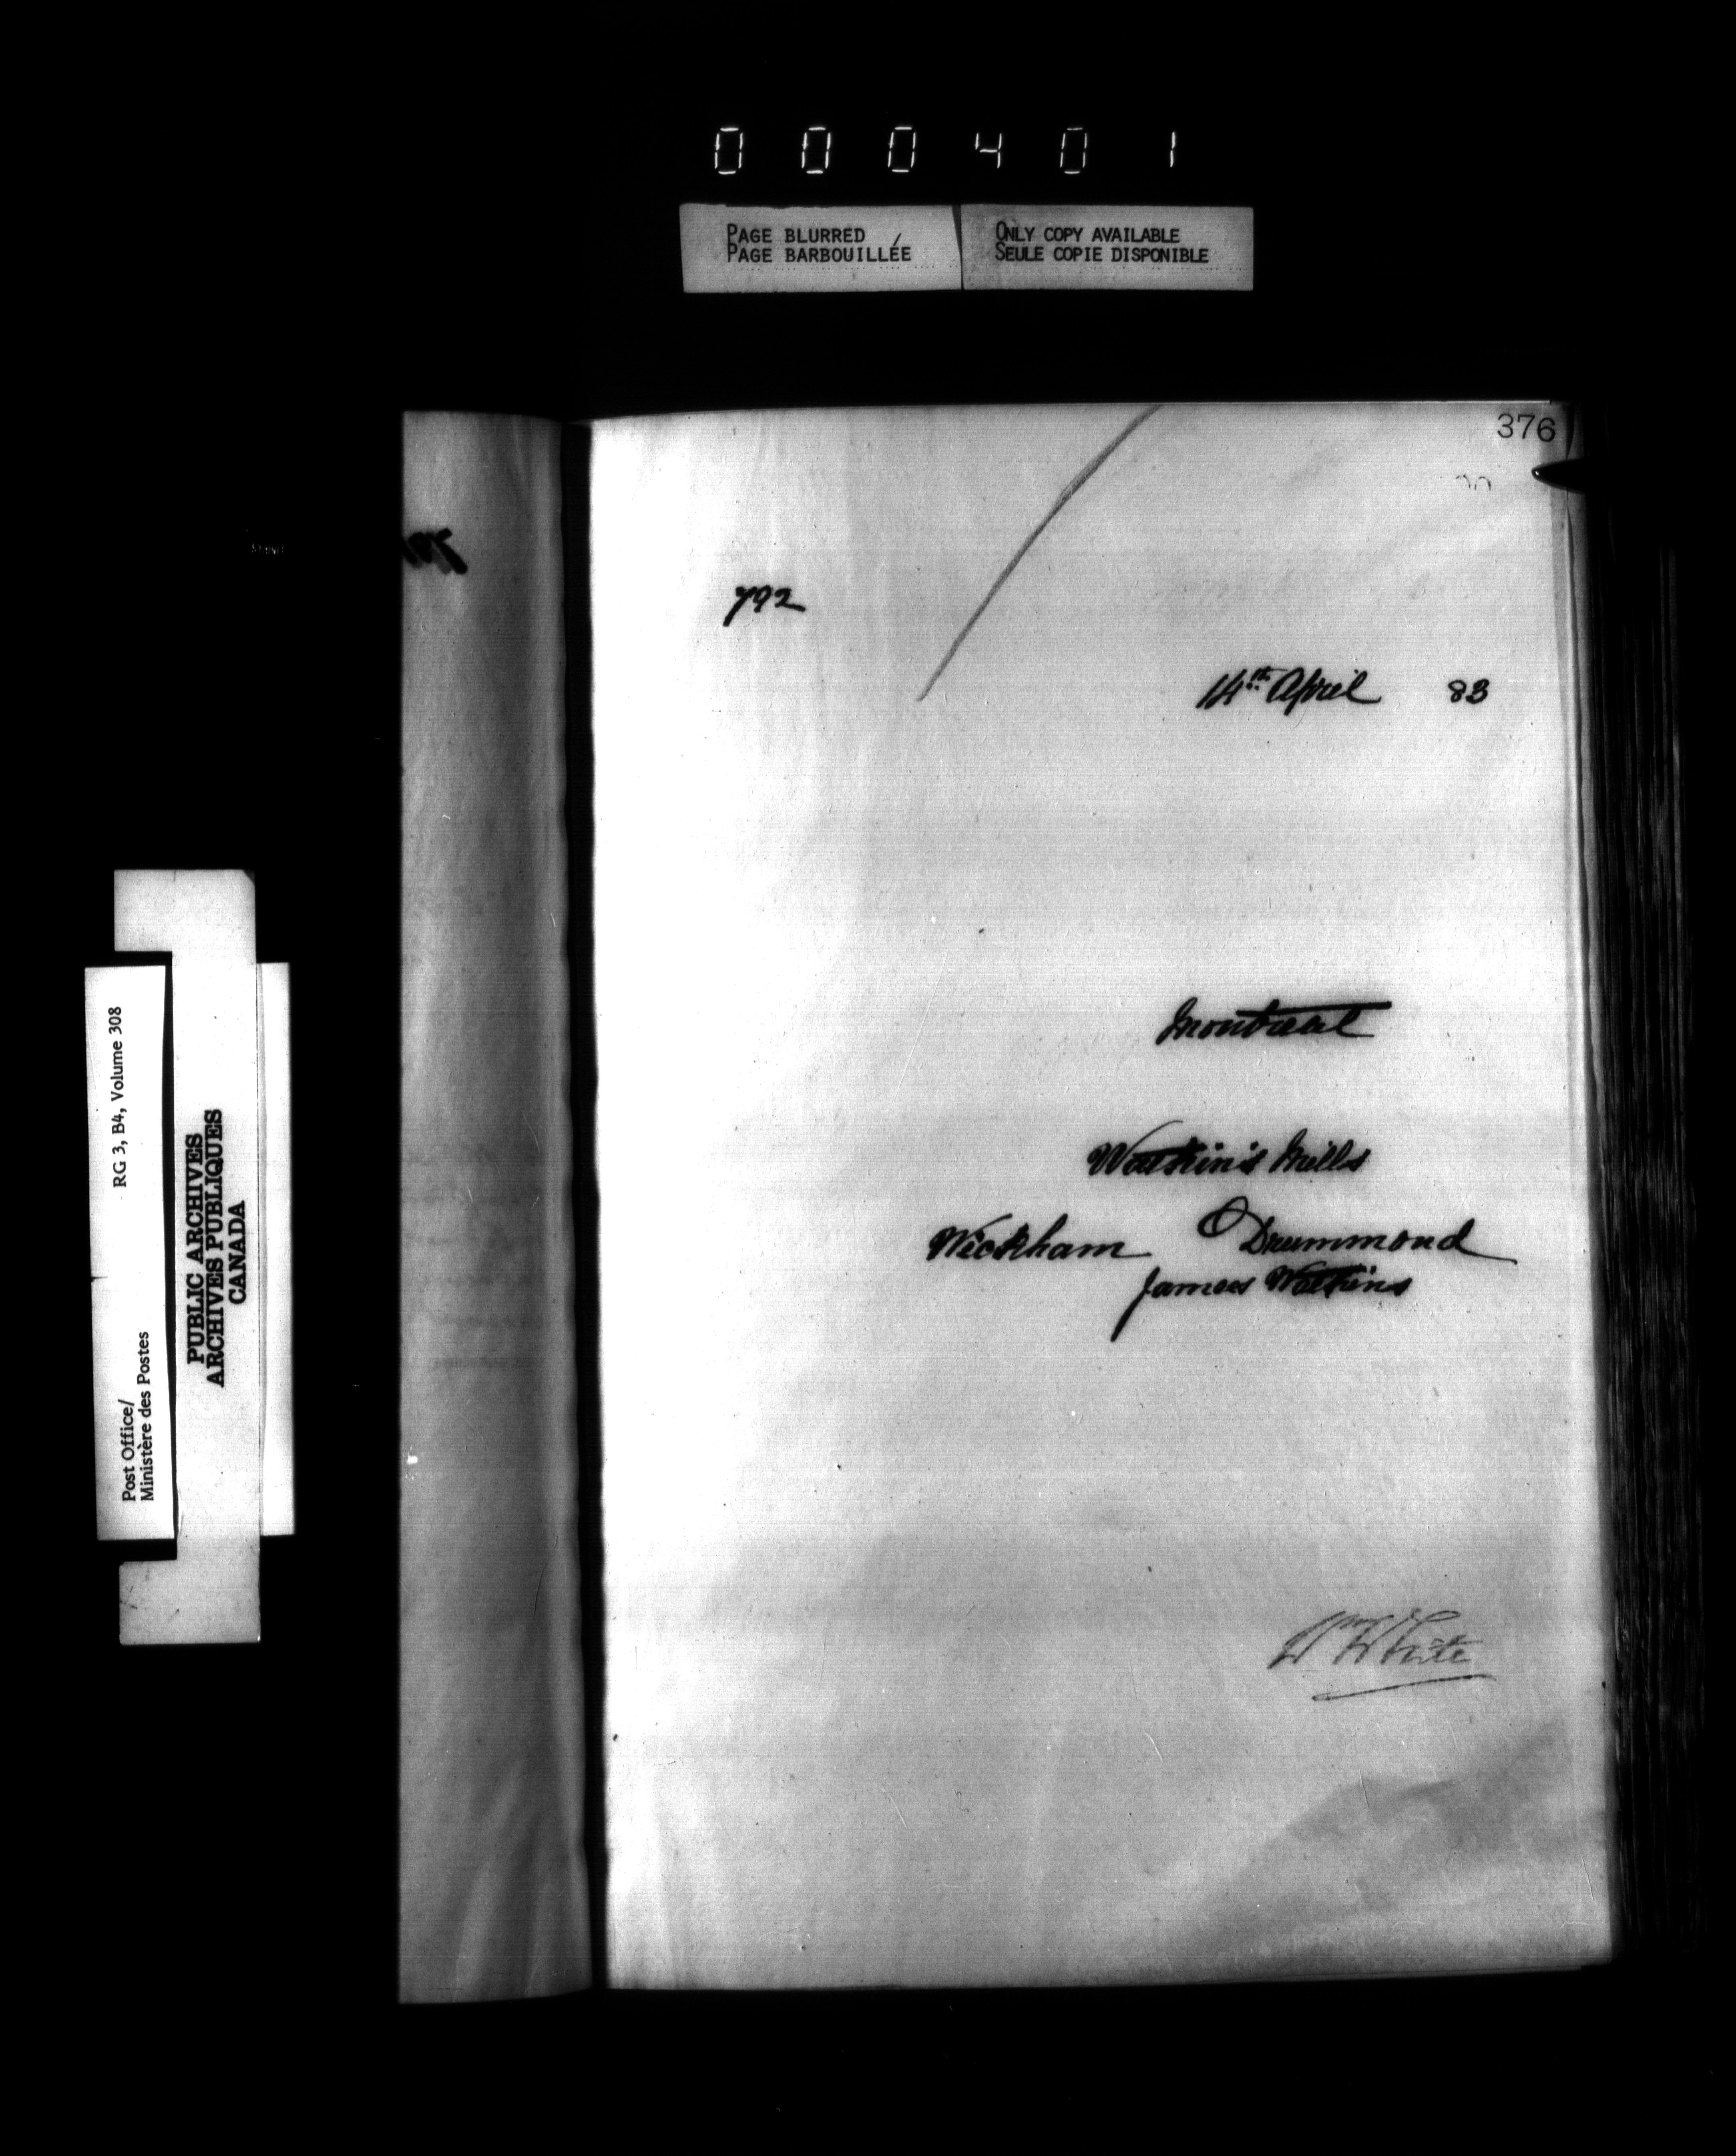 000401
PAGE BLURRED
PAGE BARBOUILLÉE
ONLY COPY AVAILABLE
SEULE COPIE DISPONIBLE
376
792
14th April 83
Montreal
Watkin's Mills
Wickham Drummond
James Watkins
Wm White
Post Office/
Ministère des Postes
RG 3, B4, Volume 308
PUBLIC ARCHIVES
ARCHIVES PUBLIQUES
CANADA